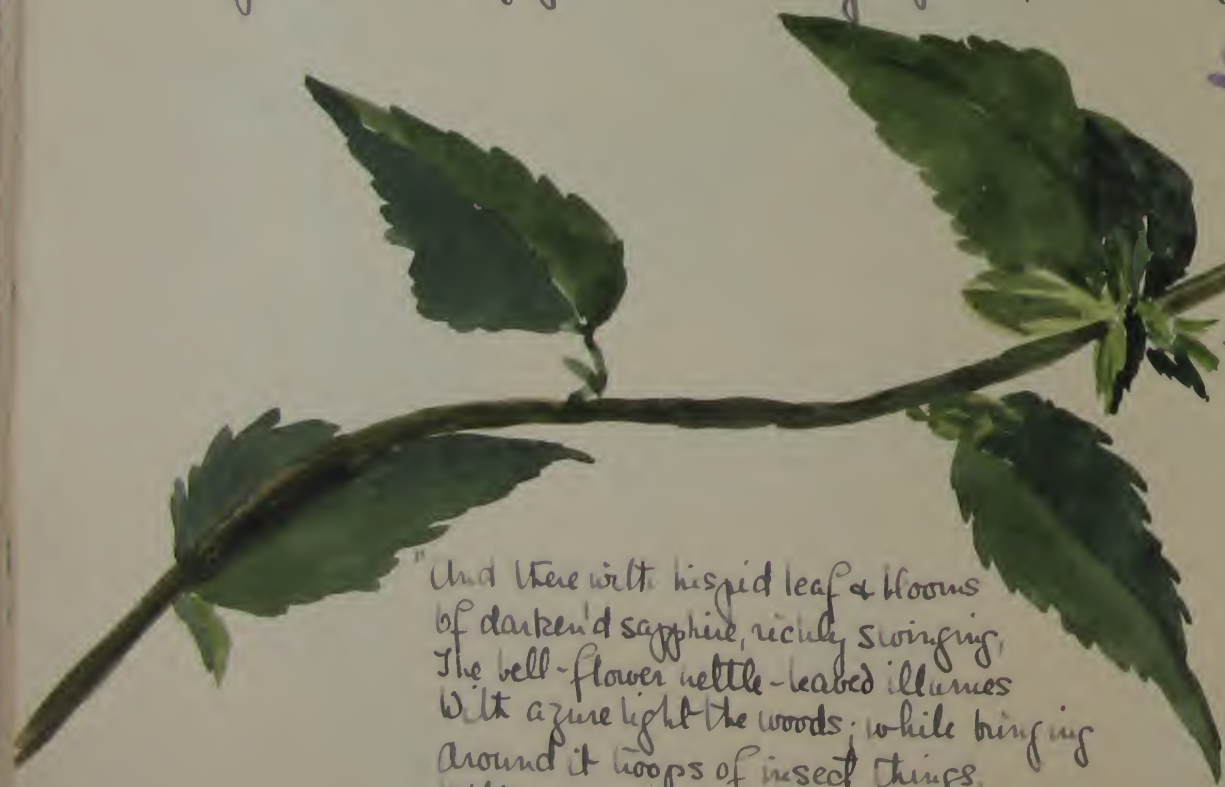 "And there with hispid leaf & blooms
Of darken'd sapphire, richly swinging,
The bell-flower nettle-leaved illumes
With azure light the woods; while bringing
Around it troops of insect things,